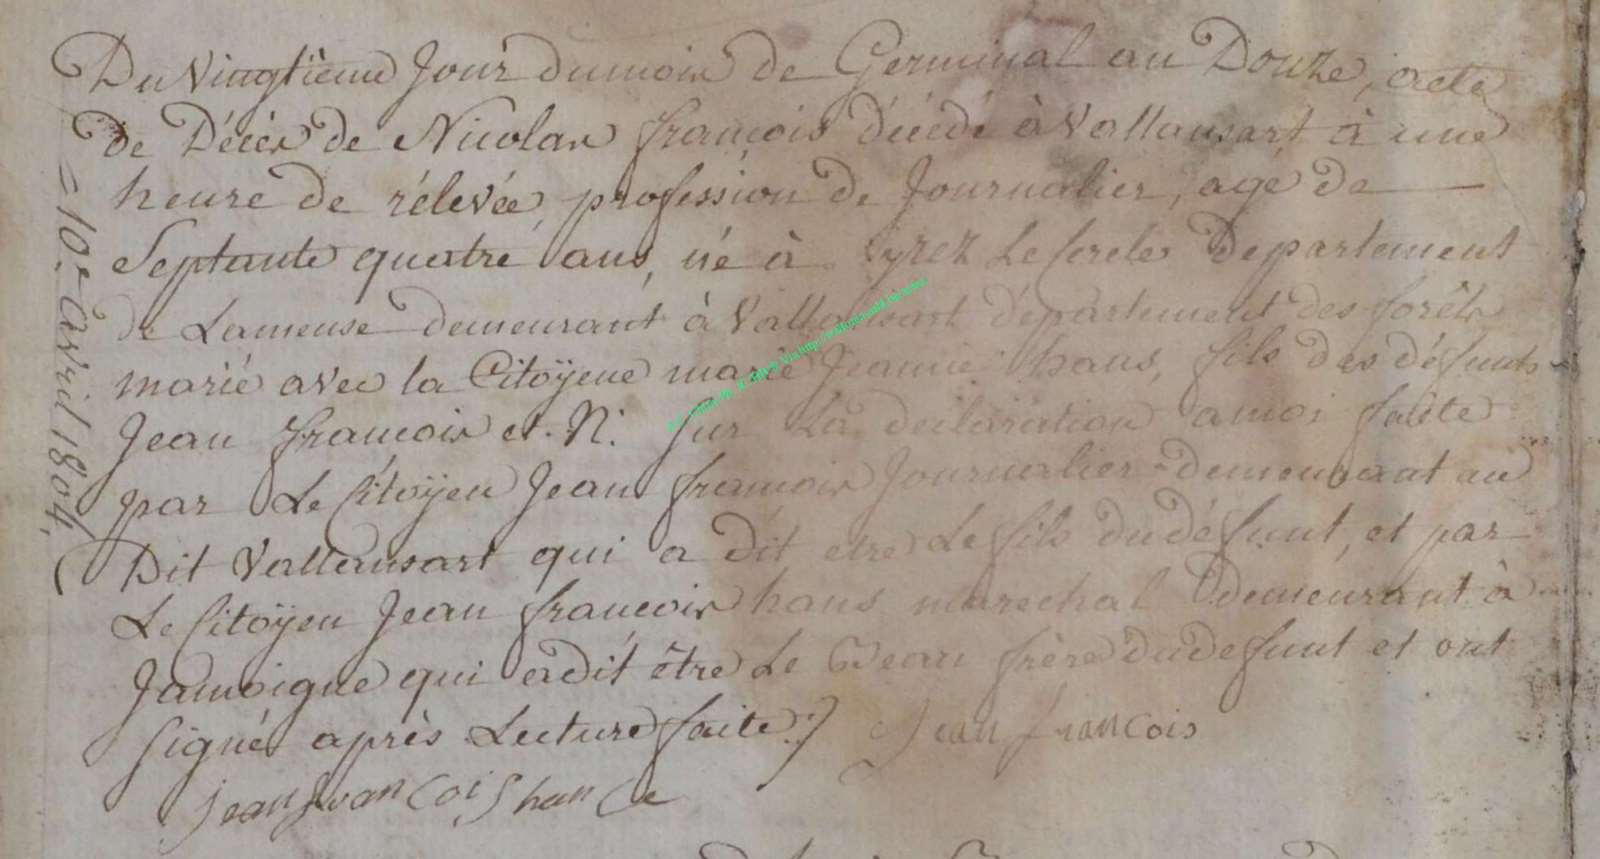 Du Vingtième Jour du mois de Germinal an Douze, acte
de Décès de Nicolas françois décédé à Vallansart à une
heure de rélevée, profession de Journalier, agé de
Septante quatre ans, né à Lefercle Departement
de Lameuse demeurant à Vallansart département des forêts
marié avec la Citoÿene marie Jeanne hans, fils des défunts
Jean françois et N. sur La déclaration amoi faite
par Le Citoÿen Jean françois Journalier demeurant au
Dit Vallansart qui a dit etre Le fils du défunt, et par
Le Citoÿen Jean françois hans marechal demeurant à
Jamoigne qui adit être Le Beau frère dudefunt et ont
signé après Lecture faite :/ Jean francois
jean francois hance
= 10.e avril 1804,